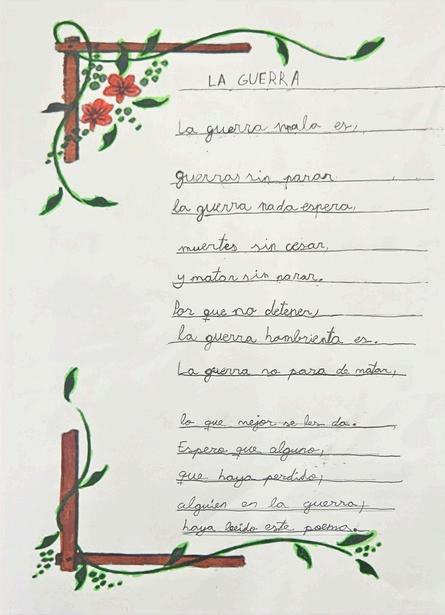 LA GUERRA
La guerra mala es,
guerras sin parar
la guerra nada espera,
muertes sin cesar,
y matar sin parar.
Por que no detener,
la guerra hambrienta es.
La guerra no para de matar,
lo que mejor se les da.
Espero que alguno,
que haya perdido,
alguien en la guerra,
haya leeido este poema.